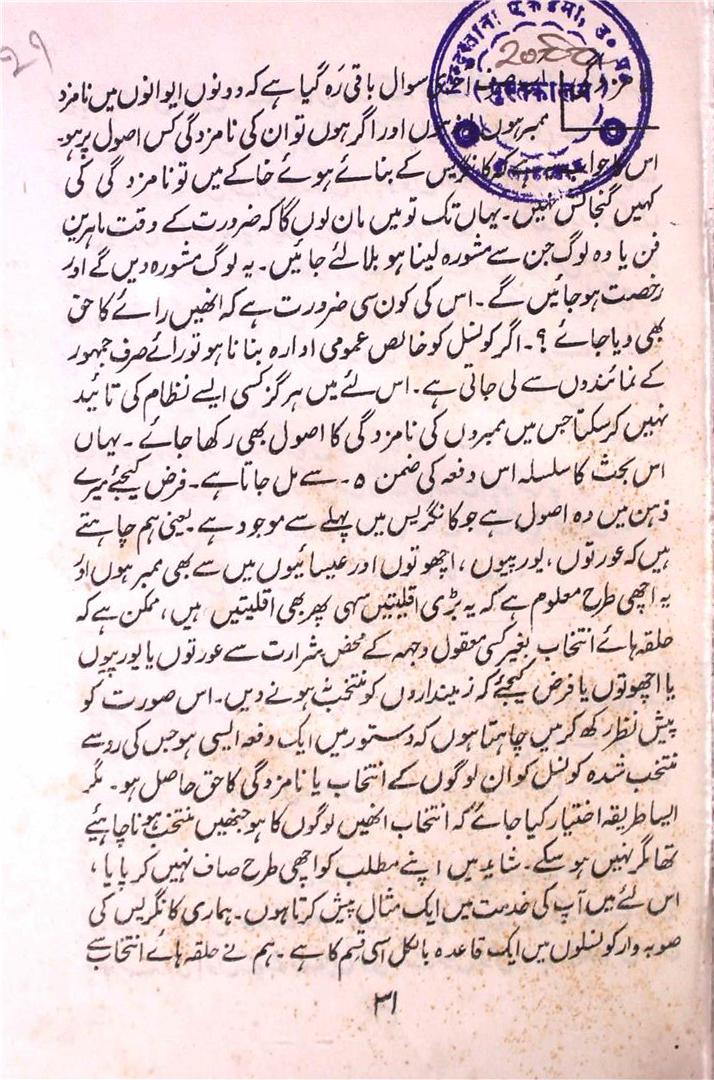 29
نامزدگی سوال باقی رہ گیا ہے کہ دونوں ایوانوں میں نامزد
ممبر ہوں ہوں اور اگر ہوں تو ان کی نامزدگی کس اصول پر ہو۔
اس کا جواب یہ ہے کہ کانگریس کے بنائے ہوئے خاکے میں تو نامزدگی کی
کہیں گنجائش نہیں۔ یہاں تک تو میں مان لوں گا کہ ضرورت کے وقت ماہرین
فن یا وہ لوگ جن سے مشورہ لینا ہو بلا لئے جائیں۔ یہ لوگ مشورہ دیں گے اور
رخصت ہو جائیں گے۔ اس کی کون سی ضرورت ہے کہ انھیں رائے کا حق
بھی دیا جائے ؟۔ اگر کونسل کو خالص عمومی ادارہ بنانا ہو تو رائے صرف جمہور
کے نمائندوں سے لی جاتی ہے۔ اس لئے میں ہرگز کسی ایسے نظام کی تائید
نہیں کر سکتا جس میں ممبروں کی نامزدگی کا اصول بھی رکھا جائے۔ یہاں
اس بحث کا سلسلہ اس دفعہ کی ضمن ۵۔ سے مل جاتا ہے۔ فرض کیجئے میرے
ذہن میں وہ اصول ہے جو کانگریس میں پہلے سے موجود ہے یعنی ہم چاہتے
ہیں کہ عورتوں، یورپیوں، اچھوتوں اور عیسائیوں میں سے بھی ممبر ہوں اور
یہ اچھی طرح معلوم ہے کہ یہ بڑی اقلیتیں سہی پھر بھی اقلیتیں ہیں، ممکن ہے کہ
حلقہ ہائے انتخاب بغیر کسی معقول وجہہ کے محض شرارت سے عورتوں یا یورپیوں
یا اچھوتوں یا فرض کیجئے کہ زمینداروں کو منتخب نہ ہونے دیں۔ اس صورت کو
پیش نظر رکھ کر میں چاہتا ہوں کہ دستور میں ایک دفعہ ایسی ہو جس کی رو سے
منتخب شدہ کونسل کو ان لوگوں کے انتخاب یا نامزدگی کا حق حاصل ہو۔ مگر
ایسا طریقہ اختیار کیا جائے کہ انتخاب انھیں لوگوں کا ہو جنھیں منتخب ہونا چاہئیے
تھا مگر نہیں ہو سکے۔ شاید میں اپنے مطلب کو اچھی طرح صاف نہیں کر پایا،
اس لئے میں آپ کی خدمت میں ایک مثال پیش کرتا ہوں۔ ہماری کانگریس کی
صوبہ وار کونسلوں میں ایک قاعدہ بالکل اسی قسم کا ہے۔ ہم نے حلقہ ہائے انتخاب سے
۳۱
पुस्तकालय